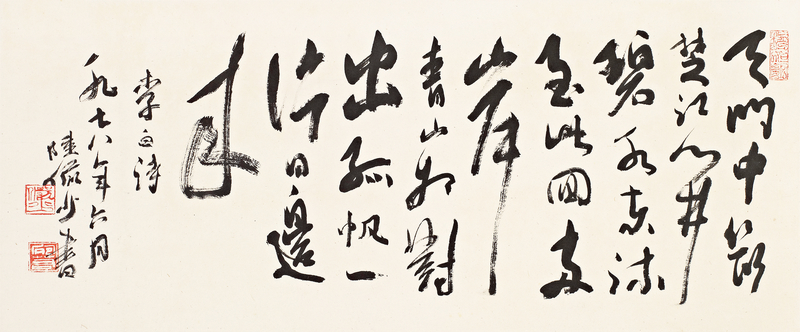 天門中斷
楚江開
碧水东流
至此回两
岸
青山相對
出孤帆一
片日邊
来
李白詩
一九七八年六月
陸儼少書